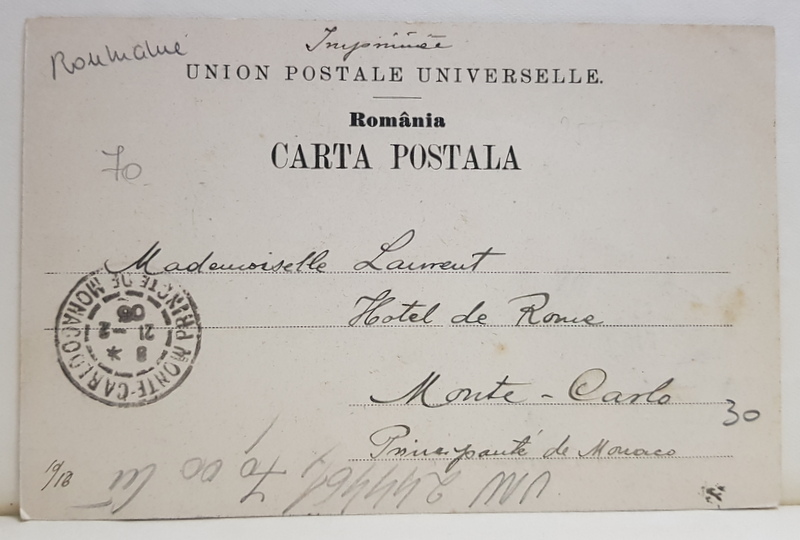 Imprimée
Roumanie
UNION POSTALE UNIVERSELLE.
România
CARTA POSTALA
70
Mademoiselle Laurent
Hotel de Rome
Monte-Carlo
30
Principauté de Monaco
MONTE-CARLO PRINCTE DE MONACO
8 *
21 - 2
06